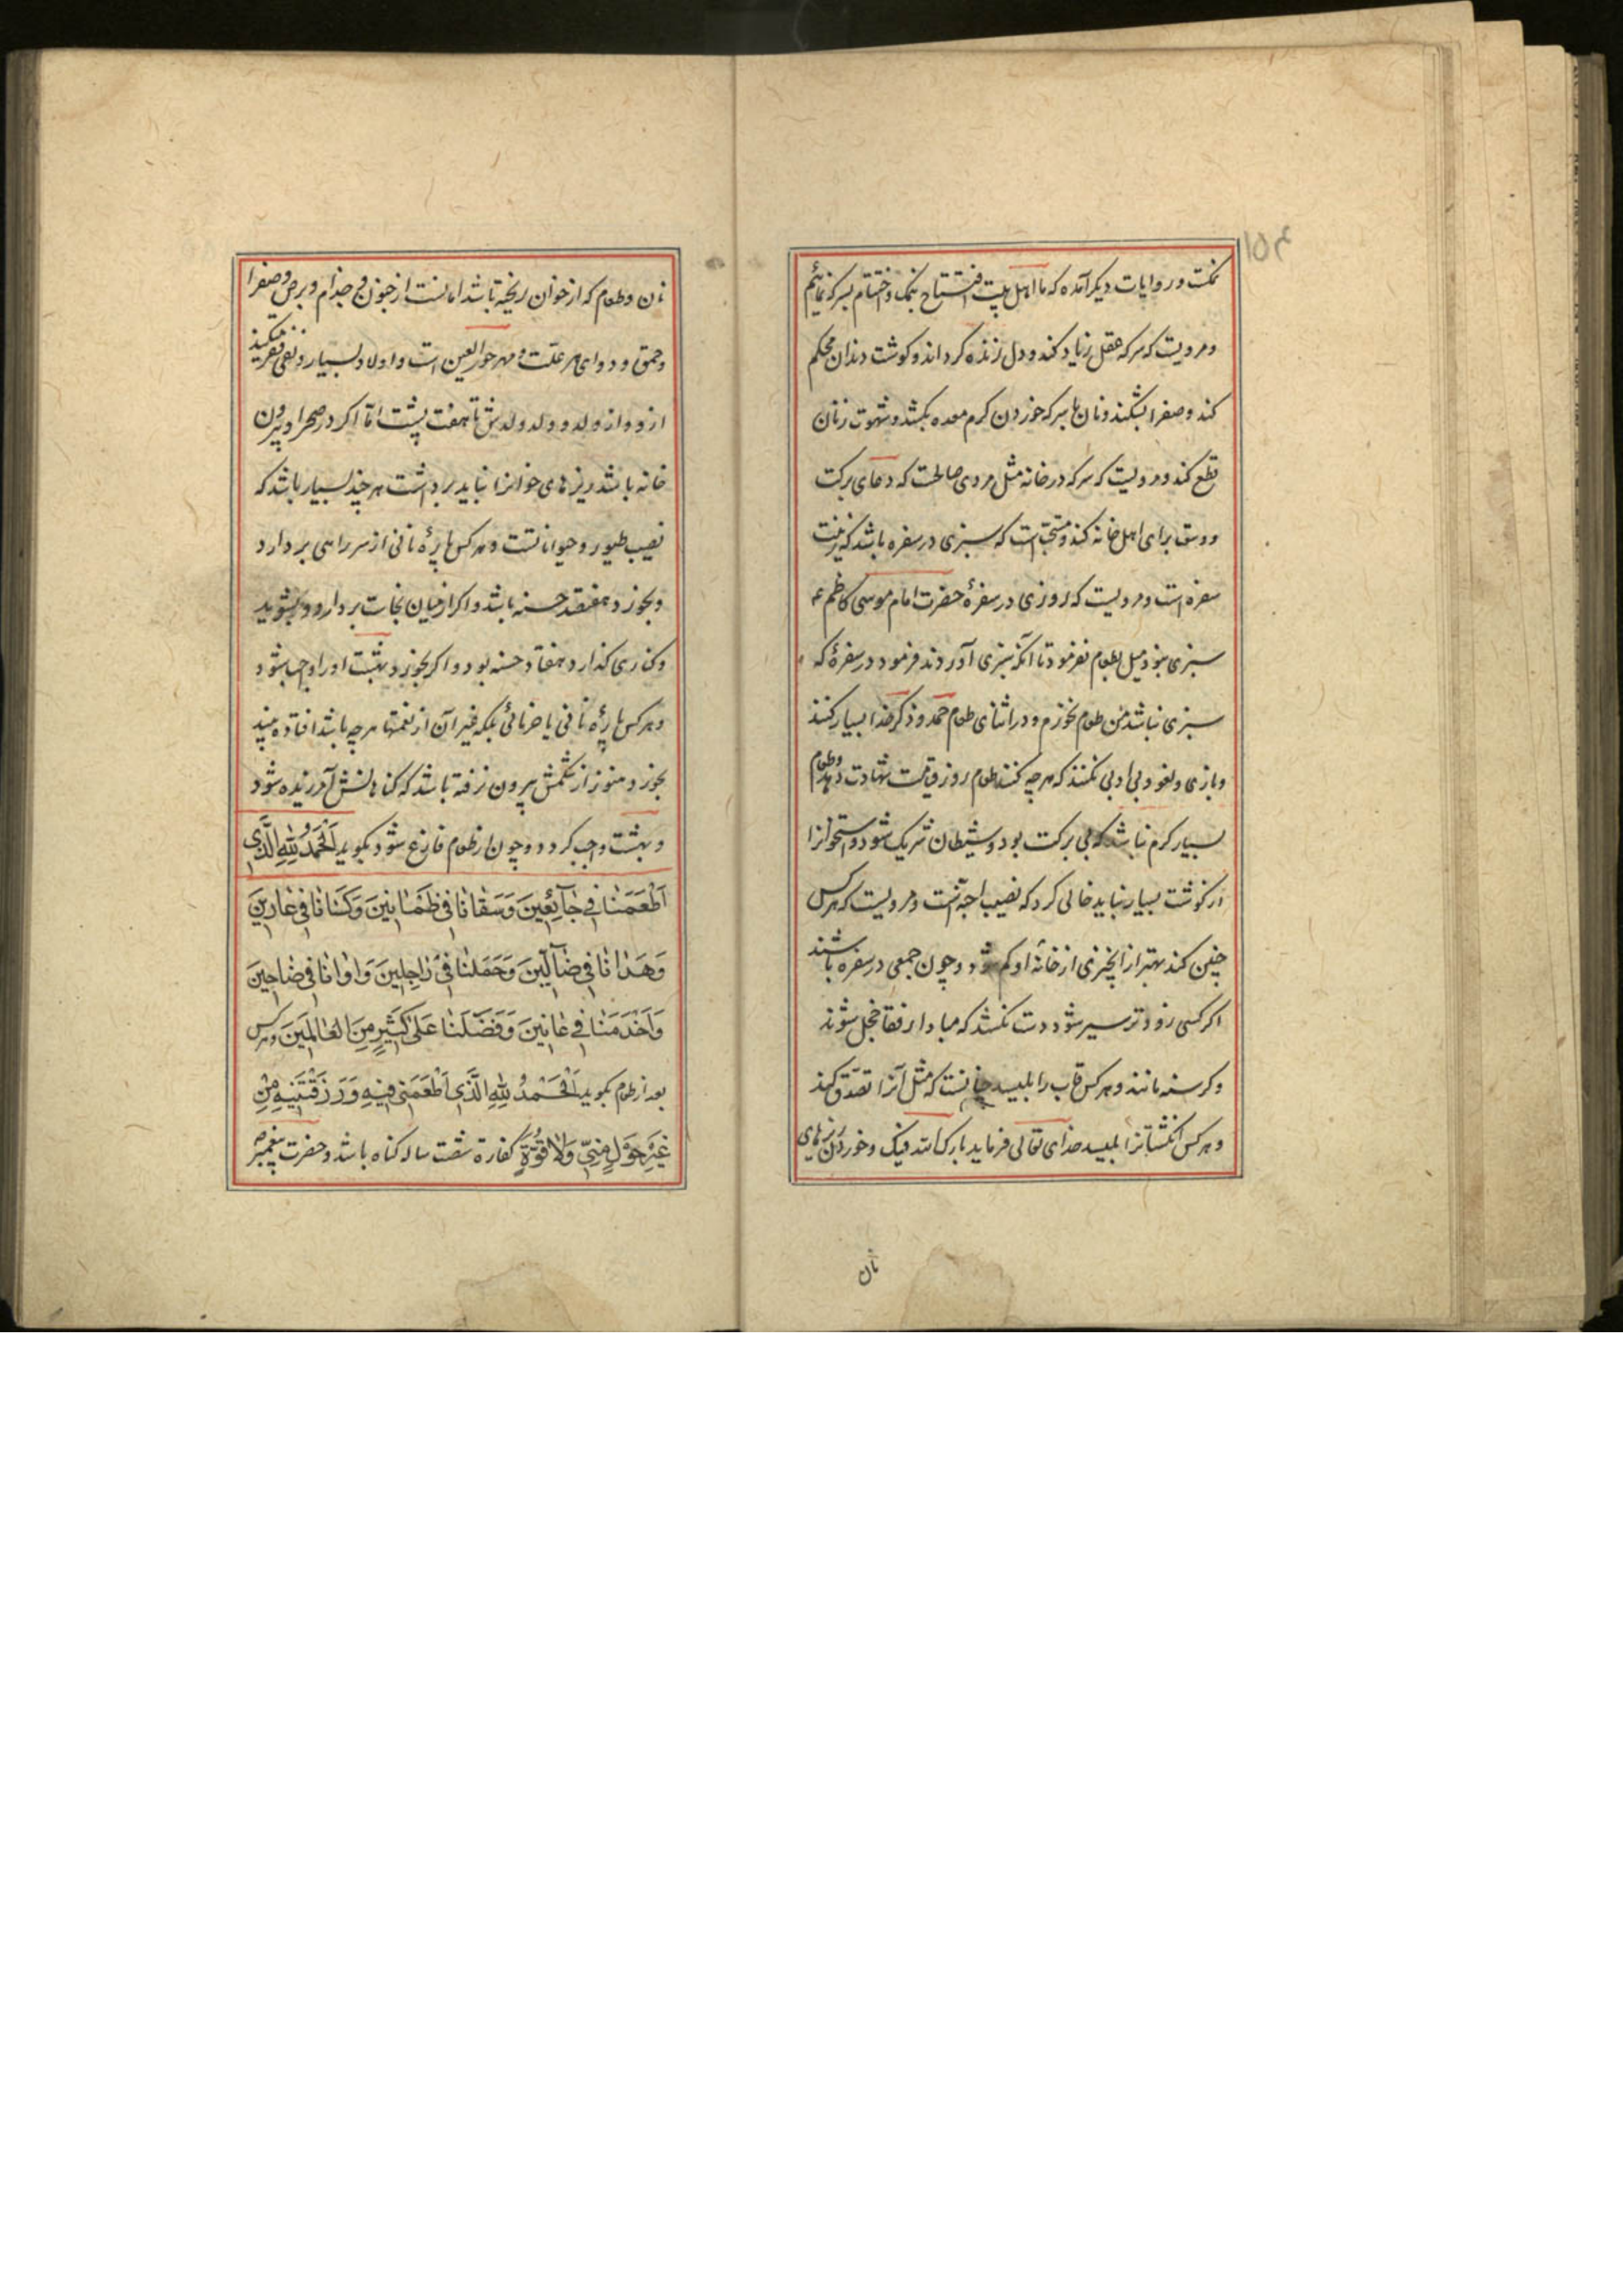 ۱۵۴
نمکست و در روایات دیگر آمده که ما اهل بیت افتتاح بنمک و اختتام بسرکه نمائیم
و مرویست که سرکه عقل زیاد کند و دل را زنده گرداند و گوشت دندان محکم
کند و صفرا بشکند و نان با سرکه خوردن کرم معده بکشد و شهوت زنان
قطع کند و مرویست که سرکه در خانه مثل مردی صالحست که دعای برکت
و وسعت برای اهل خانه کند و مستحب است که سبزی در سفره باشد که زینت
سفره است و مرویست که روزی در سفرهٔ حضرت امام موسی کاظم ع
سبزی نبود میل بطعام نفرمود تا آنکه سبزی آوردند فرمود در سفرهٔ که
سبزی نباشد من طعام نخورم و در اثنای طعام حمد و ذکر خدا بسیار کنند
و بازی و لغو و بی ادبی نکنند که هرچه کنند طعام روز قیامت شهادت دهد و طعام
بسیار گرم نباشد که بی برکت بود و شیطان شریک شود و استخوانرا
از گوشت بسیار نباید خالی کرد که نصیب اجنّه است و مرویست که هرکس
چنین کند بهتر از آنچیزی از خانهٔ او کم شود و چون جمعی در سفره باشند
اگر کسی زودتر سیر شود دست نکشد که مبادا رفقا خجل شوند
و گرسنه مانند و هرکس قاب را بلیسد چنانست که مثل آنرا تصدّق کند
و هرکس انگشتانرا بلیسد خدای تعالی فرماید بارک الله فیک و خوردن ریزهای
نان
نان و طعام که از خوان ریخته باشد امانست از جنون و جذام و برص و صفرا
و حمق و دوای هر علّت و مهر حورالعین است و اولاد بسیار و نفی فقر میکند
ازو و از ولد و ولد ولدش تا هفت پشت امّا اگر در صحرا و بیرون
خانه باشد ریزهای خوانرا نباید برداشت هرچند بسیار باشد که
نصیب طیور و حیوانانست و هرکس پارهٔ نانی از سر راهی بردارد
و بخورد هفتصد حسنه باشد و اگر از میان نجاست بردارد و بشوید
و کناری گذارد هفتاد حسنه بود و اگر بخورد بهشت او را واجب شود
و هرکس پارهٔ نانی یا خرمائی بلکه غیر آن از نعمتها هرچه باشد افتاده بیند
بخورد هنوز از شکمش بیرون نرفته باشد که گناهانش آمرزیده شود
و بهشت واجب گردد و چون از طعام فارغ شود بگوید اَلْحَمْدُ لِلّٰهِ الَّذی
اَطْعَمَنٰا فی جٰآئِعینَ وَسَقٰانٰا فی ظَمْاٰنینَ وَکَسٰانٰا فی عٰارینَ
وَهَدٰانٰا فی ضٰآلّینَ وَحَمَلَنٰا فی رٰاجِلینَ وَاٰوٰانٰا فی ضٰاحینَ
وَاَخْدَمَنٰا فی عٰانینَ وَفَضَّلَنٰا عَلیٰ کَثیرٍ مِنَ الْعٰالَمینَ و هرکس
بعد از طعام بگوید اَلْحَمْدُ لِلّٰهِ الَّذی اَطْعَمَنی فیهِ وَرَزَقَنیهِ مِنْ
غَیْرِ حَوْلٍ مِنّی وَلٰا قُوَّةٍ کفارهٔ شصت ساله گناه باشد و حضرت پیغمبر ص